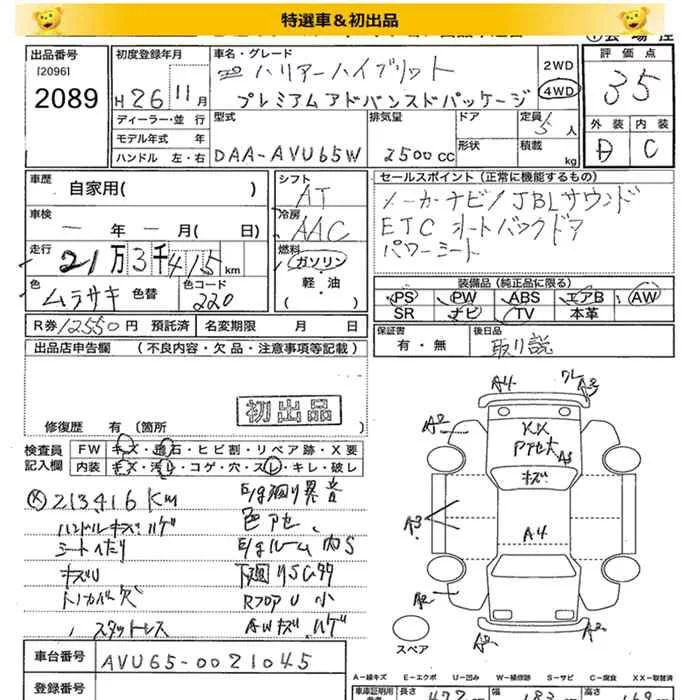 特選車＆初出品
出品番号
[2096]
2089
初度登録年月
H26年11月
車名・グレード
ハリアーハイブリット
プレミアムアドバンスドパッケージ
2WD
4WD
評価点
3.5
外装 内装
D C
ディーラー・並 行
モデル年式 年
ハンドル 左・右
型式
DAA-AVU65W
排気量
2500cc
ドア
形状
定員
5人
積載
kg
車歴
自家用( )
車検
ー年ー月( 日)
走行
21万3千415km
色
ムラサキ
色替
色コード
220
シフト
AT
冷房
AAC
燃料
ガソリン
軽・油
( )
セールスポイント (正常に機能するもの)
メーカーナビ / JBLサウンド
ETC オートバックドア
パワーシート
装備品 (純正品に限る)
PS PW ABS エアB AW
SR ナビ TV 本革
R券12550円 預託済
名変期限 月 日
保証書
有・無
後日品
取り説
出品店申告欄 (不良内容・欠品・注意事項等記載)
初出品
修復歴 有 (箇所
検査員
記入欄
FW キズ・飛石・ヒビ割・リペア跡・X要
内装 キズ・汚レ・コゲ・穴・スレ・キレ・破レ
213416KM
ハンドルキズハゲ
シートへたり
キズU
トノカバー欠
スタットレス
E/g廻り異音
色アセ、
E/gルーム内S
下廻りSC多
RフロアU小
AWキズ、ハゲ
A4
ワレ
A3
A2
XX
アアセ大
A3
キズ
A3
A4
A2
A2
A2
スペア
車台番号
AVU65-0021045
登録番号
A－線キズ E－エクボ U－凹み W－補修跡 S－サビ C－腐食 XX－取替済
車庫証明用
長さ
幅
183
高さ
169